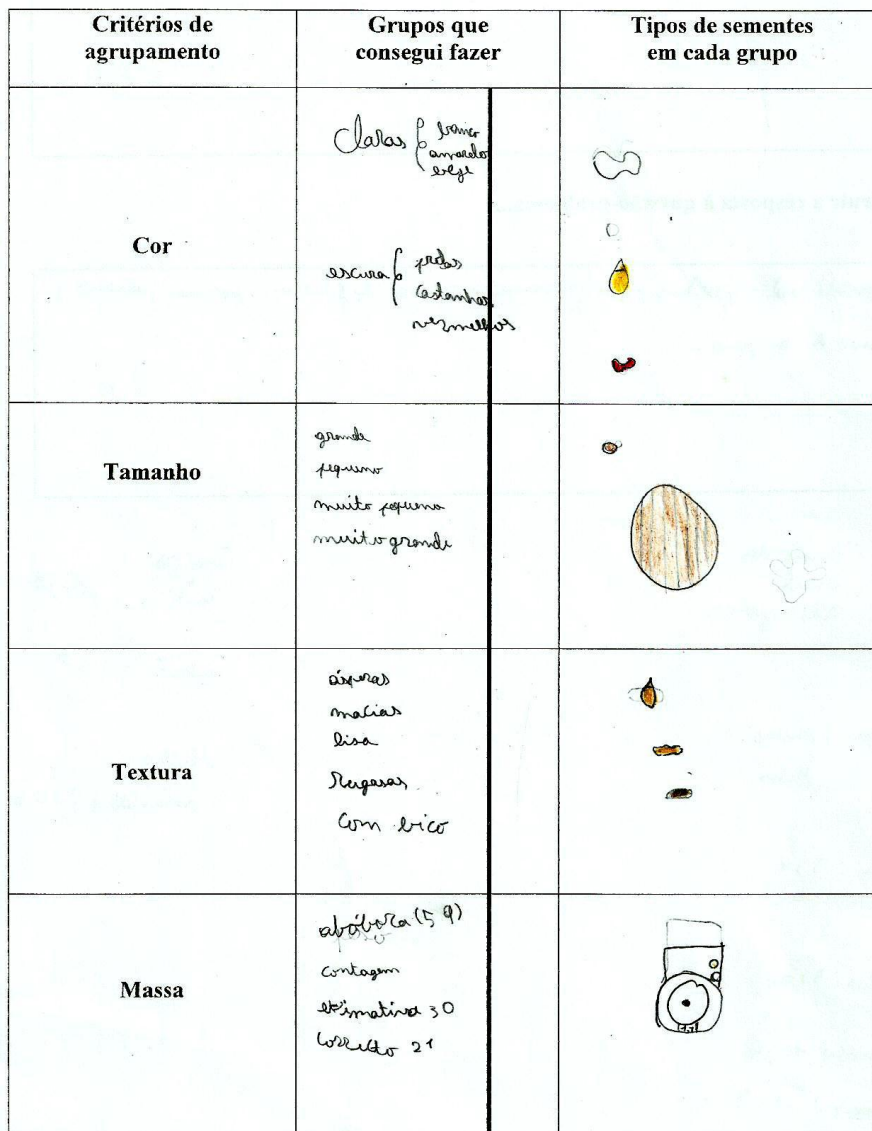 Critérios de agrupamento
Grupos que consegui fazer
Tipos de sementes em cada grupo
Cor
Claras { branco
amarelo
beje
escura { pretas
castanhas
vermelhos
Tamanho
grande
pequeno
muito pequeno
muito grande
Textura
ásperas
macias
lisa
Rugosas
Com bico
Massa
abóbora (5 g)
contagem
estimativa 30
Correcto 21